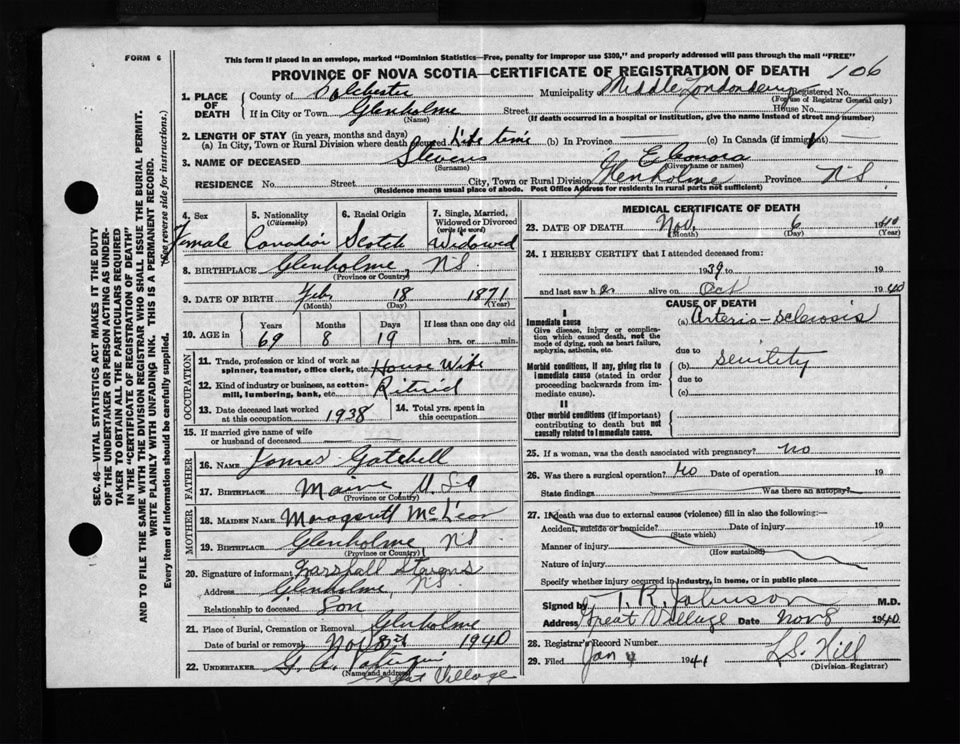 This form if placed in an envelope, marked "Dominion Statistics—Free, penalty for improper use $300," and properly addressed will pass through the mail "FREE"
FORM 6
PROVINCE OF NOVA SCOTIA—CERTIFICATE OF REGISTRATION OF DEATH 106
1. PLACE OF DEATH
County of Colchester Municipality of Middle Londonderry Registered No.
(For use of Registrar General only)
If in City or Town Glenholme Street House No.
(Name) (If death occurred in a hospital or institution, give the name instead of street and number)
2. LENGTH OF STAY (in years, months and days)
(a) In City, Town or Rural Division where death occurred Life time (b) In Province (c) In Canada (if immigrant)
3. NAME OF DECEASED Stevens Eleanora
(Surname) (Given name or names)
RESIDENCE No. Street City, Town or Rural Division Glenholme Province N S.
(Residence means usual place of abode. Post Office Address for residents in rural parts not sufficient)
4. Sex Female
5. Nationality (Citizenship) Canadian
6. Racial Origin Scotch
7. Single, Married, Widowed or Divorced (write the word) Widowed
8. BIRTHPLACE Glenholme, N S.
(Province or Country)
9. DATE OF BIRTH Feb 18 1871
(Month) (Day) (Year)
10. AGE in Years Months Days If less than one day
69 8 19 hrs. or min.
OCCUPATION
11. Trade, profession or kind of work as spinner, teamster, office clerk, etc. House Wife
12. Kind of industry or business, as cotton-mill, lumbering, bank, etc. Ritired
13. Date deceased last worked at this occupation 1938
14. Total yrs. spent in this occupation
15. If married give name of wife or husband of deceased
FATHER
16. NAME James Gatchell
17. BIRTHPLACE Maine, U.S.A
(Province or Country)
MOTHER
18. MAIDEN NAME Maragarett McLean
19. BIRTHPLACE Glenholme N S
(Province or Country)
20. Signature of informant Marshall Stevens
Address Glenholme, N S
Relationship to deceased Son
21. Place of Burial, Cremation or Removal Glenholme
Date of burial or removal Nov 8th 1940
22. UNDERTAKER G. A.
(Name and address) Great Village
MEDICAL CERTIFICATE OF DEATH
23. DATE OF DEATH Nov. 6 1940
(Month) (Day) (Year)
24. I HEREBY CERTIFY that I attended deceased from:
1939 to 19
and last saw h er alive on Oct 1940
CAUSE OF DEATH
I
Immediate cause (a) Arterio-sclerosis
Give disease, injury or complication which caused death, not the mode of dying, such as heart failure, asphyxia, asthenia, etc.
due to
Morbid conditions, if any, giving rise to immediate cause (stated in order proceeding backwards from immediate cause).
(b) Senility
due to
(c)
II
Other morbid conditions (if important) contributing to death but not causally related to immediate cause.
25. If a woman, was the death associated with pregnancy? No
26. Was there a surgical operation? No Date of operation 19
State findings Was there an autopsy?
27. If death was due to external causes (violence) fill in also the following:—
Accident, suicide or homicide? Date of injury 19
(State which)
Manner of injury
(How sustained)
Nature of injury
Specify whether injury occurred in industry, in home, or in public place
Signed by T. R. Johnson M.D.
Address Great Village Date Nov 8 1940
28. Registrar's Record Number
29. Filed Jan 1941 L.S. Hill
(Division Registrar)
SEC. 46—VITAL STATISTICS ACT MAKES IT THE DUTY
OF THE UNDERTAKER OR PERSON ACTING AS UNDER-
TAKER TO OBTAIN ALL THE PARTICULARS REQUIRED
IN THE "CERTIFICATE OF REGISTRATION OF DEATH"
AND TO FILE THE SAME WITH THE DIVISION REGISTRAR WHO SHALL ISSUE THE BURIAL PERMIT.
WRITE PLAINLY WITH UNFADING INK. THIS IS A PERMANENT RECORD.
Every item of information should be carefully supplied. (See reverse side for instructions.)